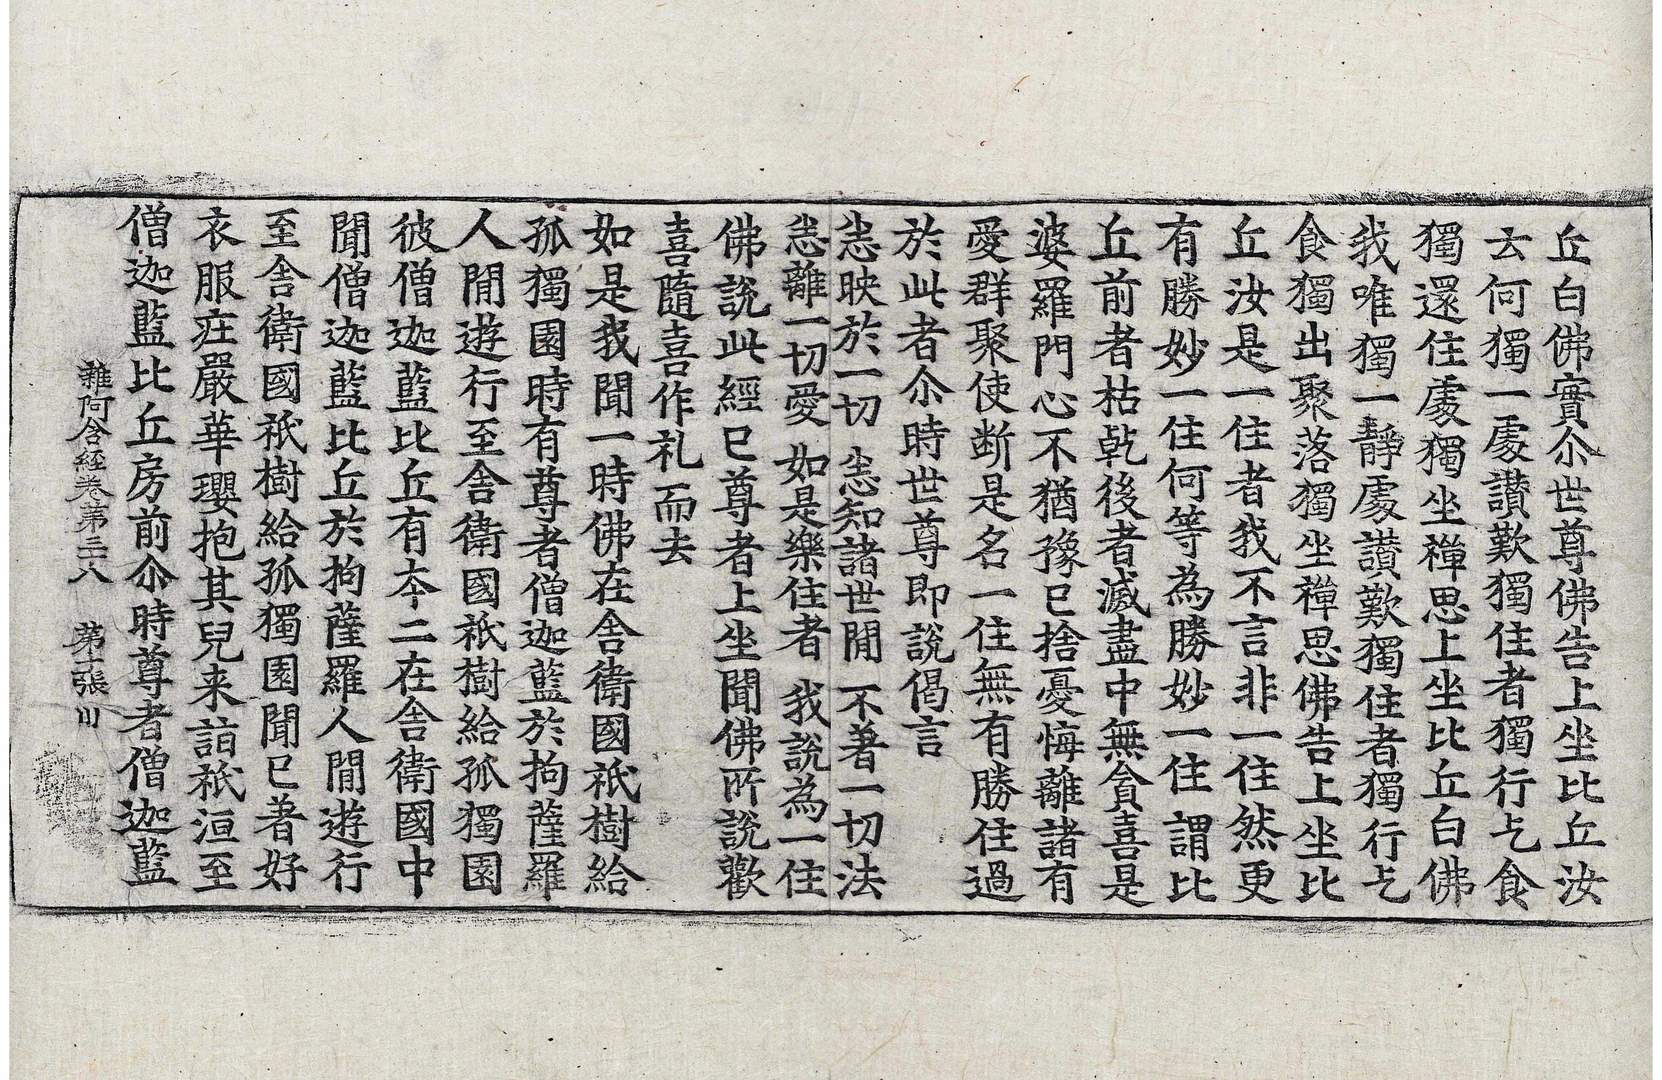 丘白佛實尒世尊佛告上坐比丘汝
云何獨一處讃歎獨住者獨行乞食
獨還住處獨坐禪思上坐比丘白佛
我唯獨一靜處讃歎獨住者獨行乞
食獨出聚落獨坐禪思佛告上坐比
丘汝是一住者我不言非一住然更
有勝妙一住何等為勝妙一住謂比
丘前者枯乹後者滅盡中無貪喜是
婆羅門心不猶豫已捨憂悔離諸有
愛群聚使断是名一住無有勝住過
於此者尒時世尊即說偈言
悉映於一切 悉知諸世間 不著一切法
悉離一切愛 如是樂住者 我說為一住
佛說此經已尊者上坐聞佛所說歡
喜隨喜作礼而去
如是我聞一時佛在舍衛國祇樹給
孤獨園時有尊者僧迦藍於拘薩羅
人間遊行至舍衛國祇樹給孤獨園
彼僧迦藍比丘有夲二在舍衛國中
聞僧迦藍比丘於拘薩羅人間遊行
至舍衛國祇樹給孤獨園聞已著好
衣服庄嚴華瓔抱其兒来詣祇洹至
僧迦藍比丘房前尒時尊者僧迦藍
雜阿含経卷第三八 第二張 川